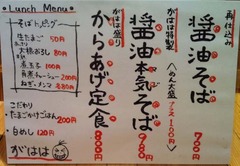 Lunch Menu
再仕込み
醤油そば
700円
がはは特製
醤油本気そば
980円
〈めん大盛 プラス100円〉
がはは盛り
からあげ定食
900円
そばトッピング
生たまご 50円
大根おろし 80円
煮玉子 100円
角煮チャーシュー 200円
ねぎ・メンマ 各80円
こだわり
たまごかけごはん 200円
白めし 120円
がはは